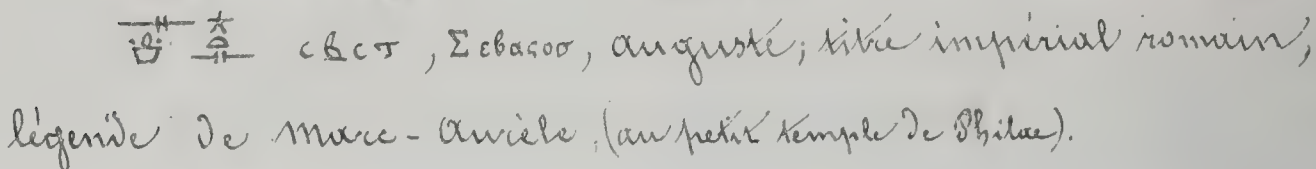 ⲥⲃⲥⲧ, Σεβαςοσ, auguste; titre impérial romain,
légende de Marc-Aurèle, (au petit temple de Philae).